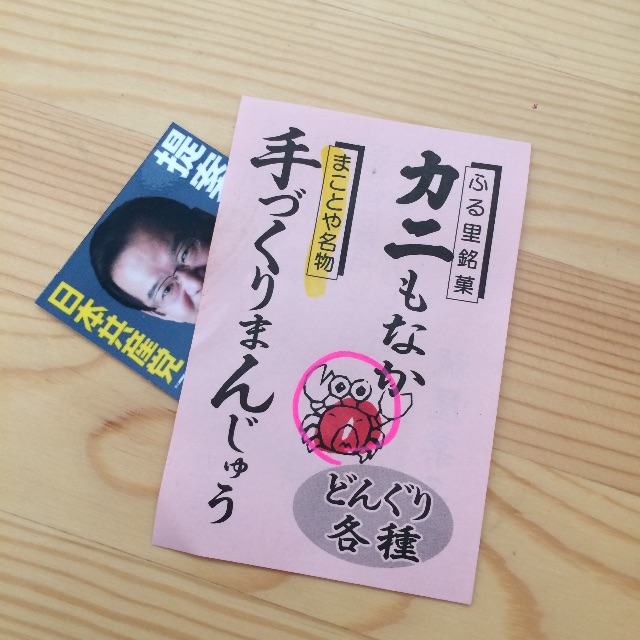 ふる里銘菓
カニもなか
まことや名物
手づくりまんじゅう
どんぐり
各種
提案
日本共産党